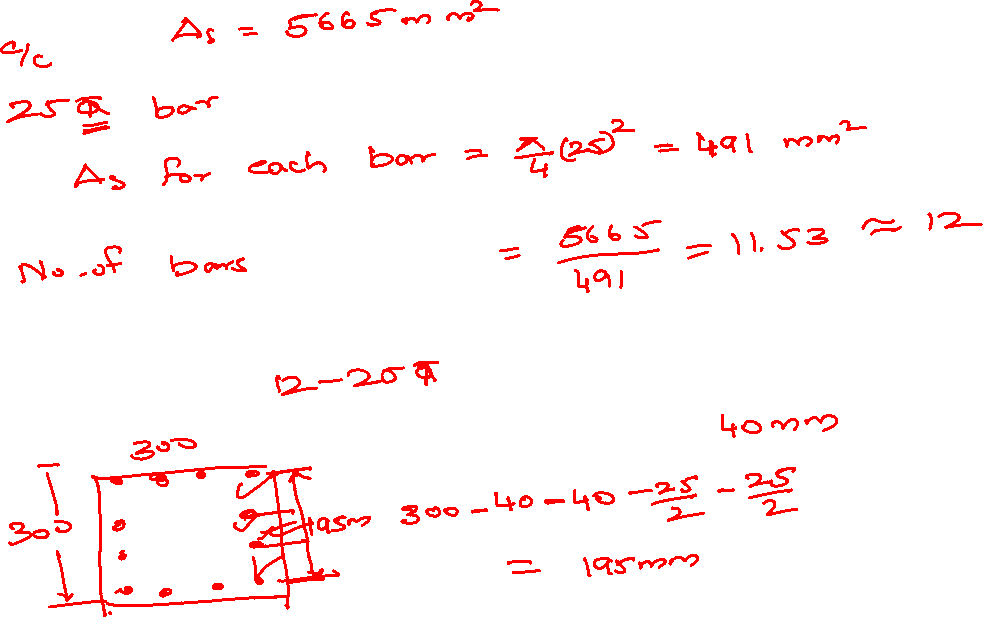 As = 5665 mm²
c/c
25 Φ bar
As for each bar = π/4 (25)² = 491 mm²
No. of bars = 5665/491 = 11.53 ≈ 12
12-25 Φ
40 mm
300
300 195m 300-40-40-25/2-25/2
= 195mm